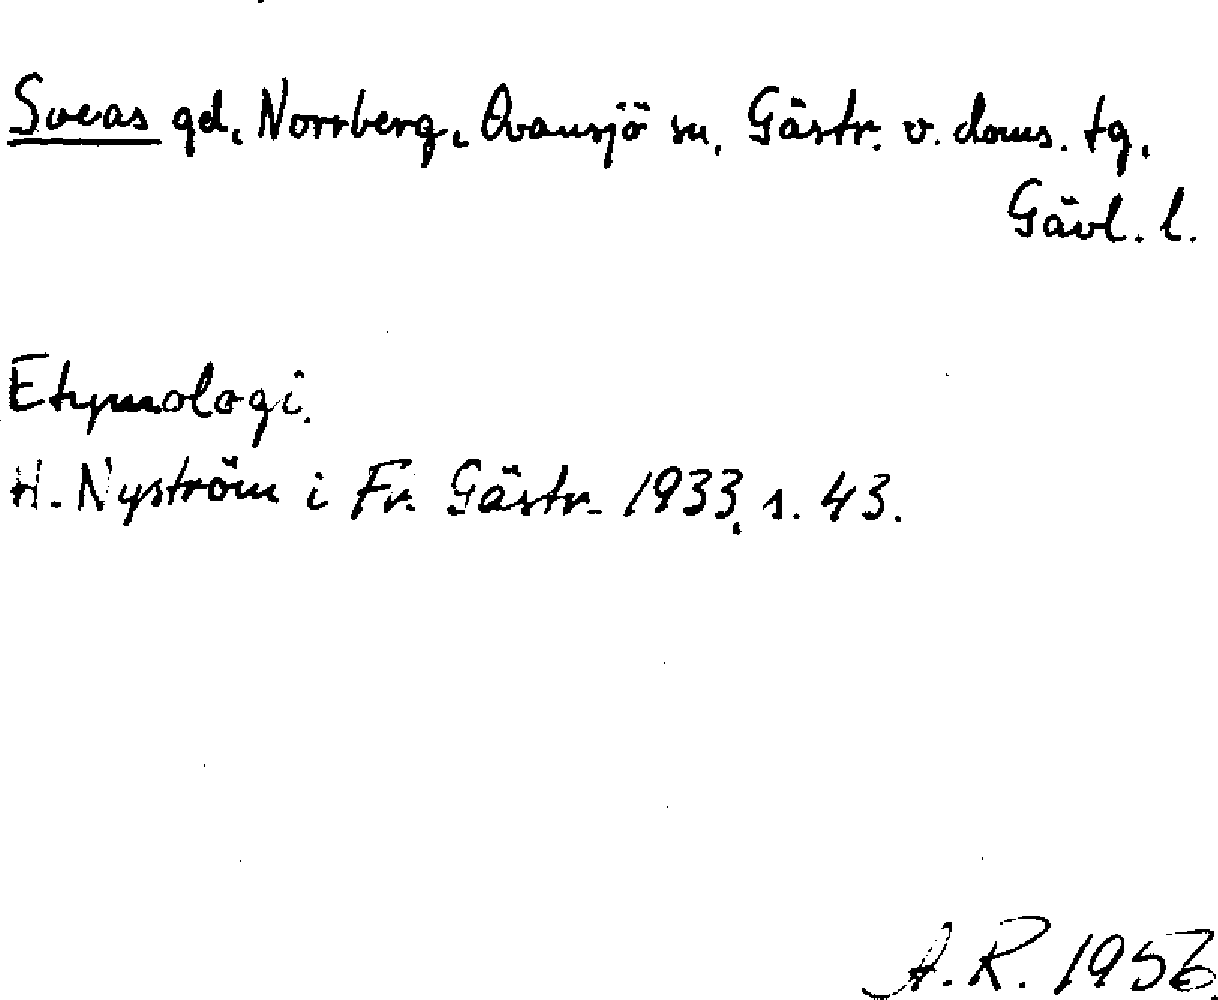 Sveas gd, Norrberg, Ovansjö sn, Gästr. v. doms. tg.
Gävl. l.
Etymologi.
H. Nyström i Fr. Gästr. 1933, s. 43.
A.R. 1956